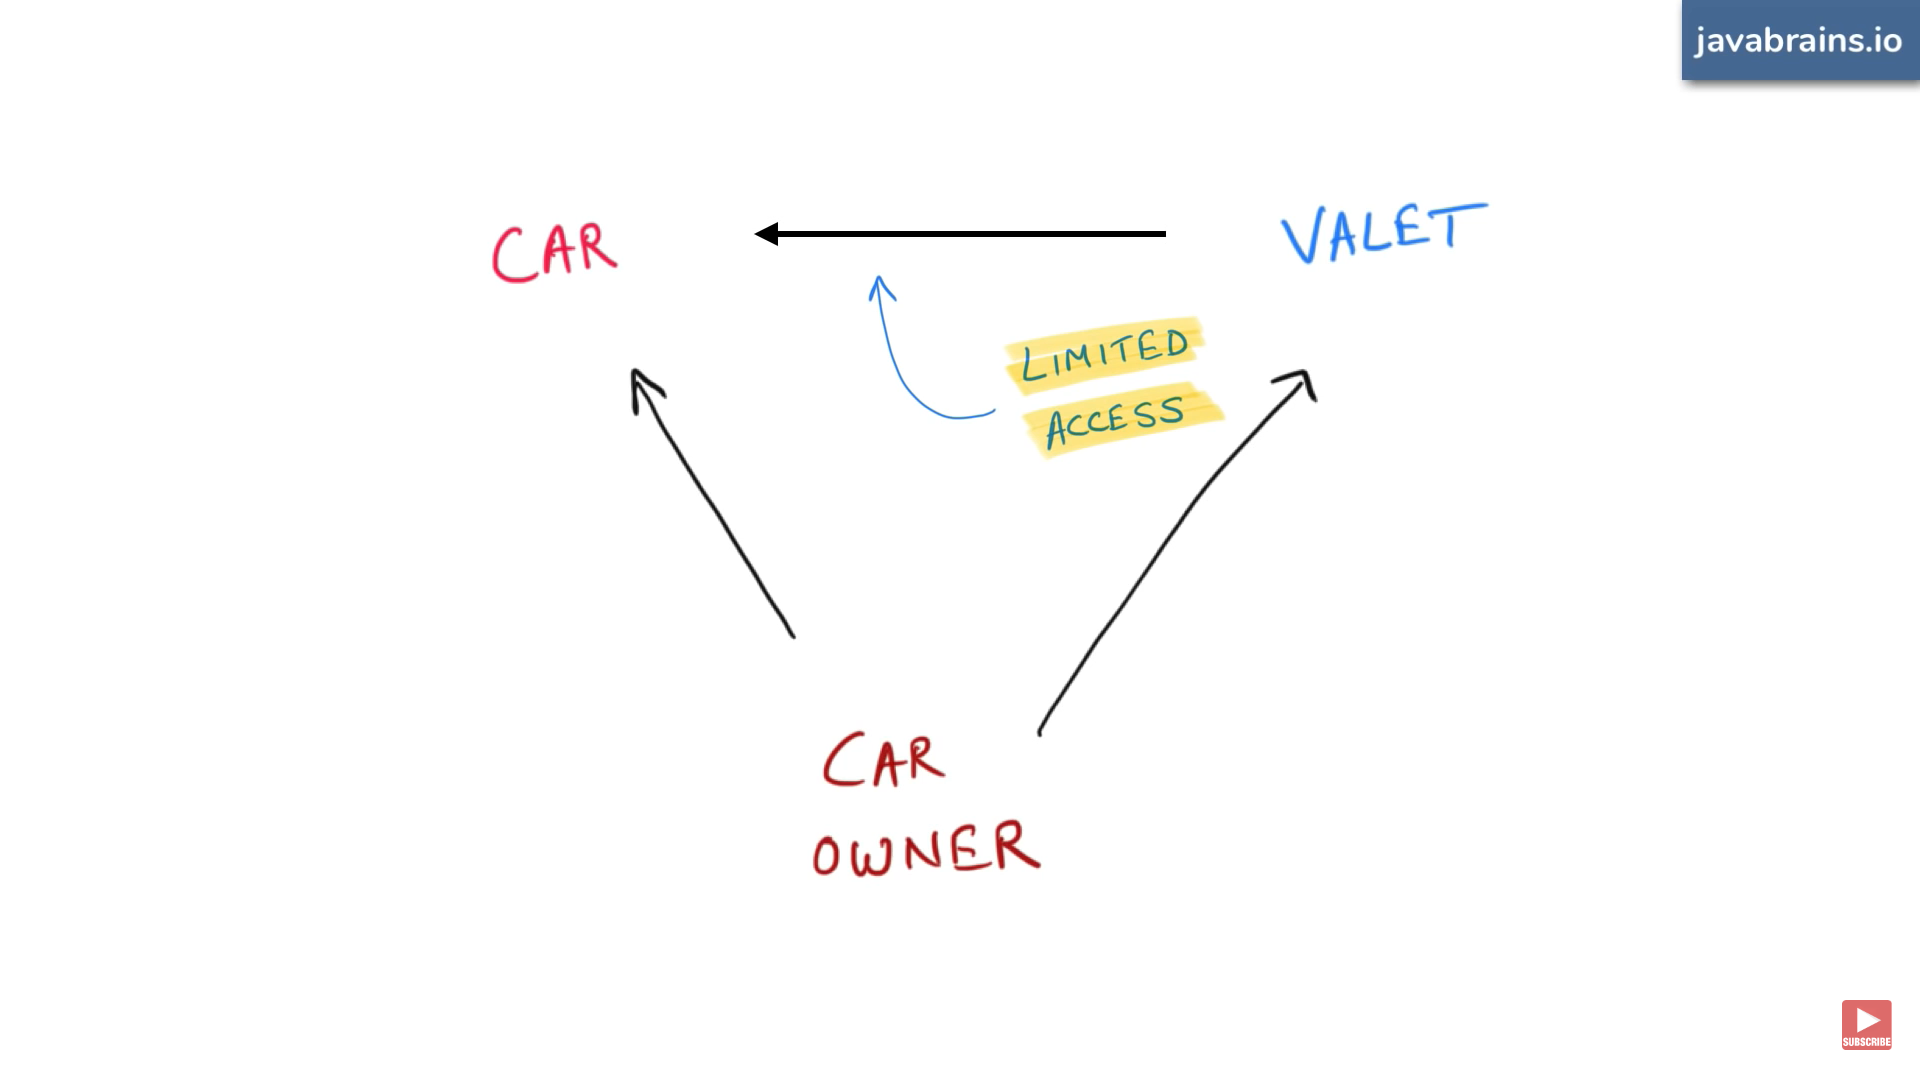 javabrains.io
CAR
VALET
LIMITED
ACCESS
CAR
OWNER
SUBSCRIBE